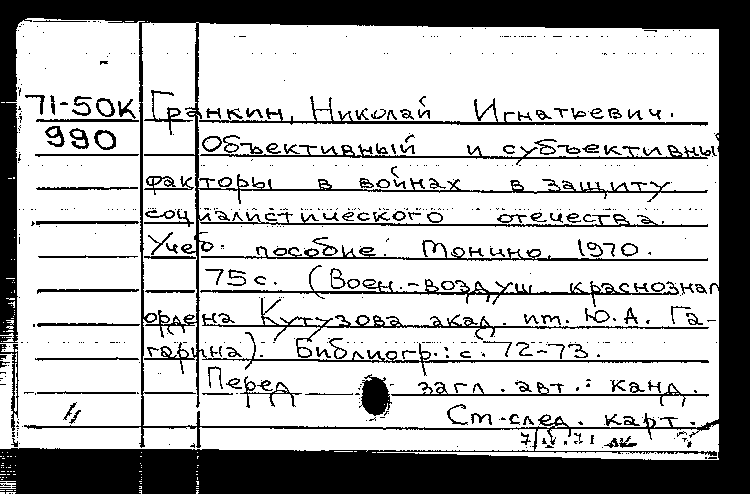 71-50К Гранкин, Николай Игнатьевич.
990 Объективный и субъективный
факторы в войнах в защиту
социалистического отечества.
Учеб. пособие. Монино, 1970.
75 с. (Воен.-воздуш краснознам
ордена Кутузова акад. им. Ю.А. Га-
гарина). Библиогр.: с. 72-73.
Перед загл. авт.: канд.
См. след. карт.